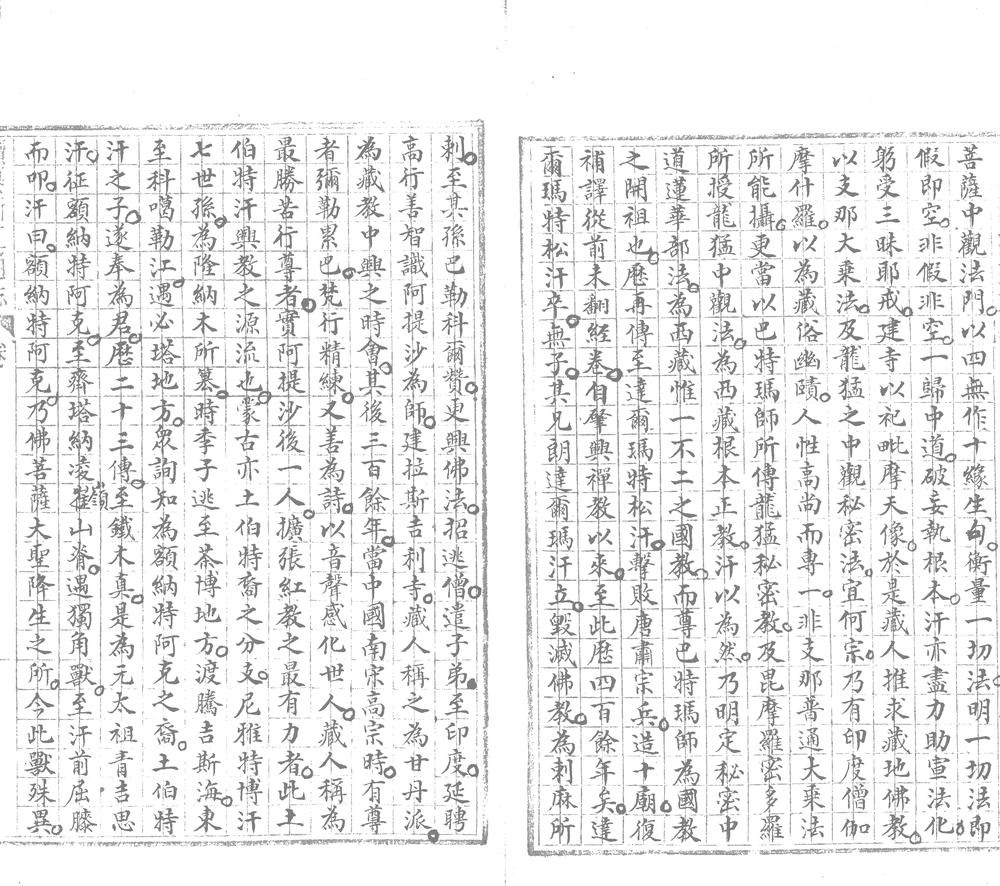 菩薩中觀法門。以四無作十緣生句。衡量一切法。明一切法即
假即空。非假非空。一歸中道。破妄執根本。汗亦盡力助宣法化。
躬受三昧耶戒。建寺以祀毗摩天像。於是藏人推求藏地佛教。
以支那大乘法。及龍猛之中觀秘密法。宜何宗。乃有印度僧伽
摩什羅。以為藏俗幽賾。人性高尚而專一。非支那普通大乘法
所能攝。更當以巴特瑪師所傳龍猛秘密教。及毘摩羅密多羅
所授龍猛中觀法。為西藏根本正教。汗以為然。乃明定秘密中
道蓮華部法。為西藏惟一不二之國教。而尊巴特瑪師為國教
之開祖也。歷再傳至達爾瑪特松汗。擊敗唐肅宗兵。造十廟。復
補譯從前未翻經卷。自肇興禪教以來。至此歷四百餘年矣。達
爾瑪特松汗卒。無子。其兄朗達爾瑪汗立。毀滅佛教。為刺麻所
刺。至其孫巴勒科爾贊。更興佛法。招逃僧。遣子弟。至印度。延聘
高行善智識阿提沙為師。建拉斯吉利寺。藏人稱之為甘丹派。
為藏教中興之時會。其後三百餘年。當中國南宋高宗時。有尊
者彌勒累巴。梵行精練。又善為詩。以音聲感化世人。藏人稱為
最勝苦行尊者。實阿提沙後一人。擴張紅教之最有力者。此土
伯特汗興教之源流也。蒙古亦土伯特裔之分支。尼雅特博汗
七世孫。為隆納木所篡。時季子逃至茶博地方。渡騰吉斯海。東
至科噶勒江。遇必塔地方。眾詢知為額納特阿克之裔。土伯特
汗之子。遂奉為君。歷二十三傳。至鐵木真。是為元太祖青吉思
汗。征額納特阿克。至齊塔納凌嶺山脊。遇獨角獸。至汗前屈膝
而叩。汗曰。額納特阿克。乃佛菩薩大聖降生之所。今此獸殊異。